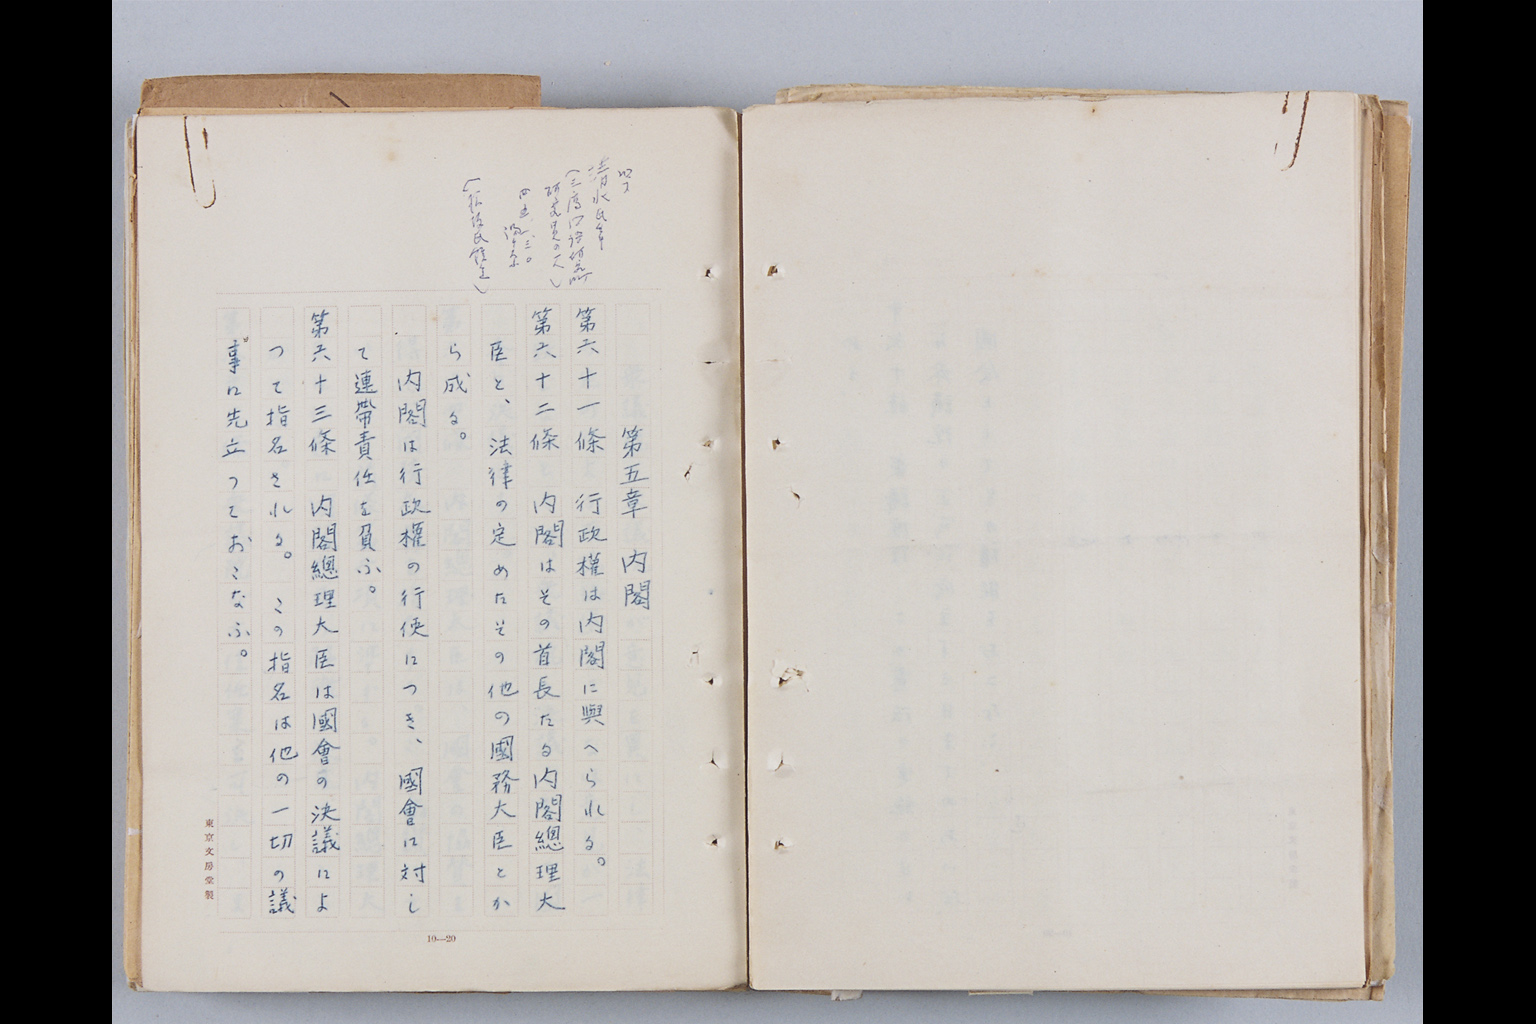 清水氏筆
第五章 内閣
第六十一條 行政權は内閣に與へられる。
第六十二條 内閣はその首長たる内閣總理大
臣と、法律の定めたその他の國務大臣とか
ら成る。
内閣は行政權の行使につき、國會に対し
て連帶責任を負ふ。
第六十三條 内閣總理大臣は國會の決議によ
つて指名される。 この指名は他の一切の議
事に先立つておこなふ。
東京文房堂製
10—20